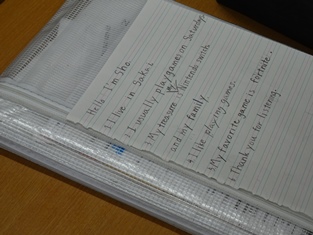 Hello I'm Sho
I live in Sakai
I usually play games on Saturdays.
My treasure is my Nintendo switch
and my family
I like playing games.
My favorite game is fortnite.
Thank you for listening.